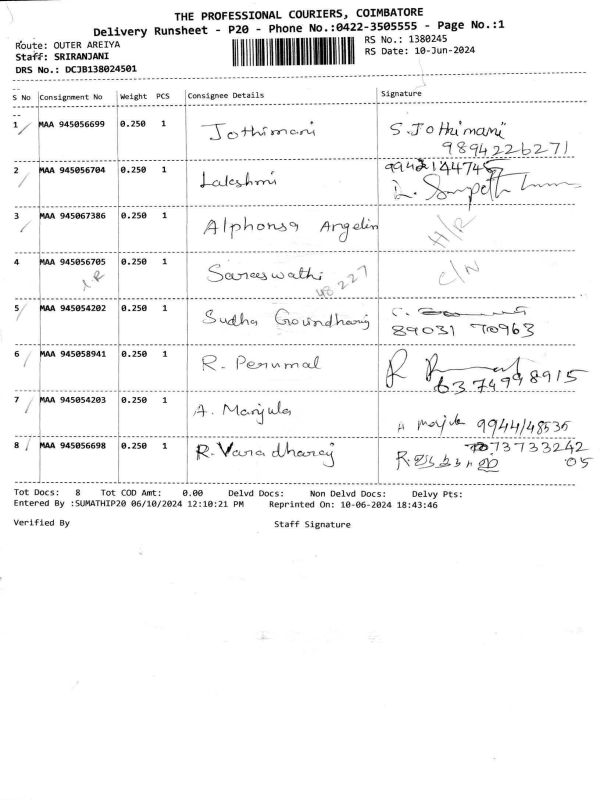 THE PROFESSIONAL COURIERS, COIMBATORE
Delivery Runsheet - P20 - Phone No.:0422-3505555 - Page No.:1
Route: OUTER AREIYA RS No.: 1380245
Staff: SRIRANJANI RS Date: 10-Jun-2024
DRS No.: DCJB138024501
S No Consignment No Weight PCS Consignee Details Signature
1 MAA 945056699 0.250 1 Jothimani S. Jothimani
9894226271
2 MAA 945056704 0.250 1 Lakshmi
3 MAA 945067386 0.250 1 Alphonsa Angelin H/R
4 MAA 945056705 0.250 1 Sareeswathi C/N
5 MAA 945054202 0.250 1 Sudha Govindharaj
89031 70963
6 MAA 945058941 0.250 1 R. Perumal
6374998915
7 MAA 945054203 0.250 1 A. Manjula
8 MAA 945056698 0.250 1 R. Varadharaj 73733242
05
Tot Docs: 8 Tot COD Amt: 0.00 Delvd Docs: Non Delvd Docs: Delvy Pts:
Entered By :SUMATHIP20 06/10/2024 12:10:21 PM Reprinted On: 10-06-2024 18:43:46
Verified By Staff Signature